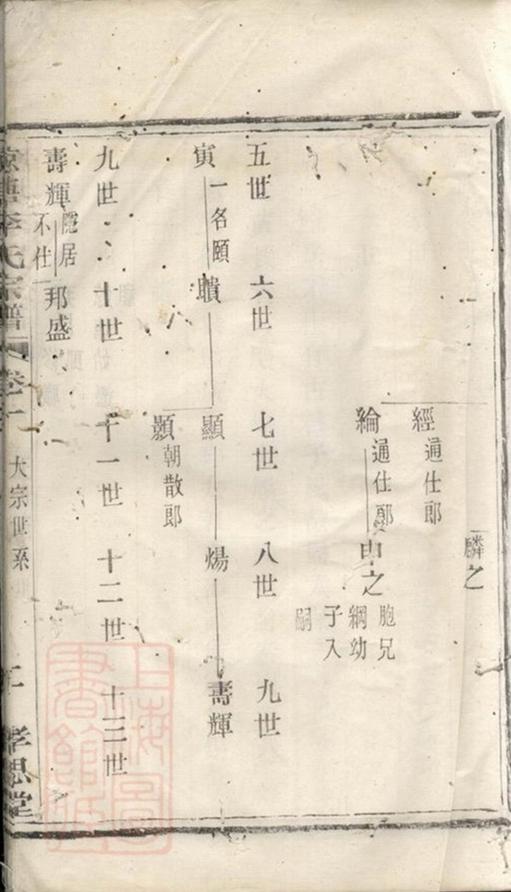 麟之
經 通仕郎
綸 通仕郎 申之 胞兄
綱幼
子入
嗣
五世 六世 七世 八世 九世
寅 一名頤 瞶 顯 煬 壽輝
顥 朝散郎
九世 十世 十一世 十二世 十三世
壽輝 隱居
不仕 邦盛
李氏宗譜 卷一 大宗世系 孝思堂
上海圖書館藏